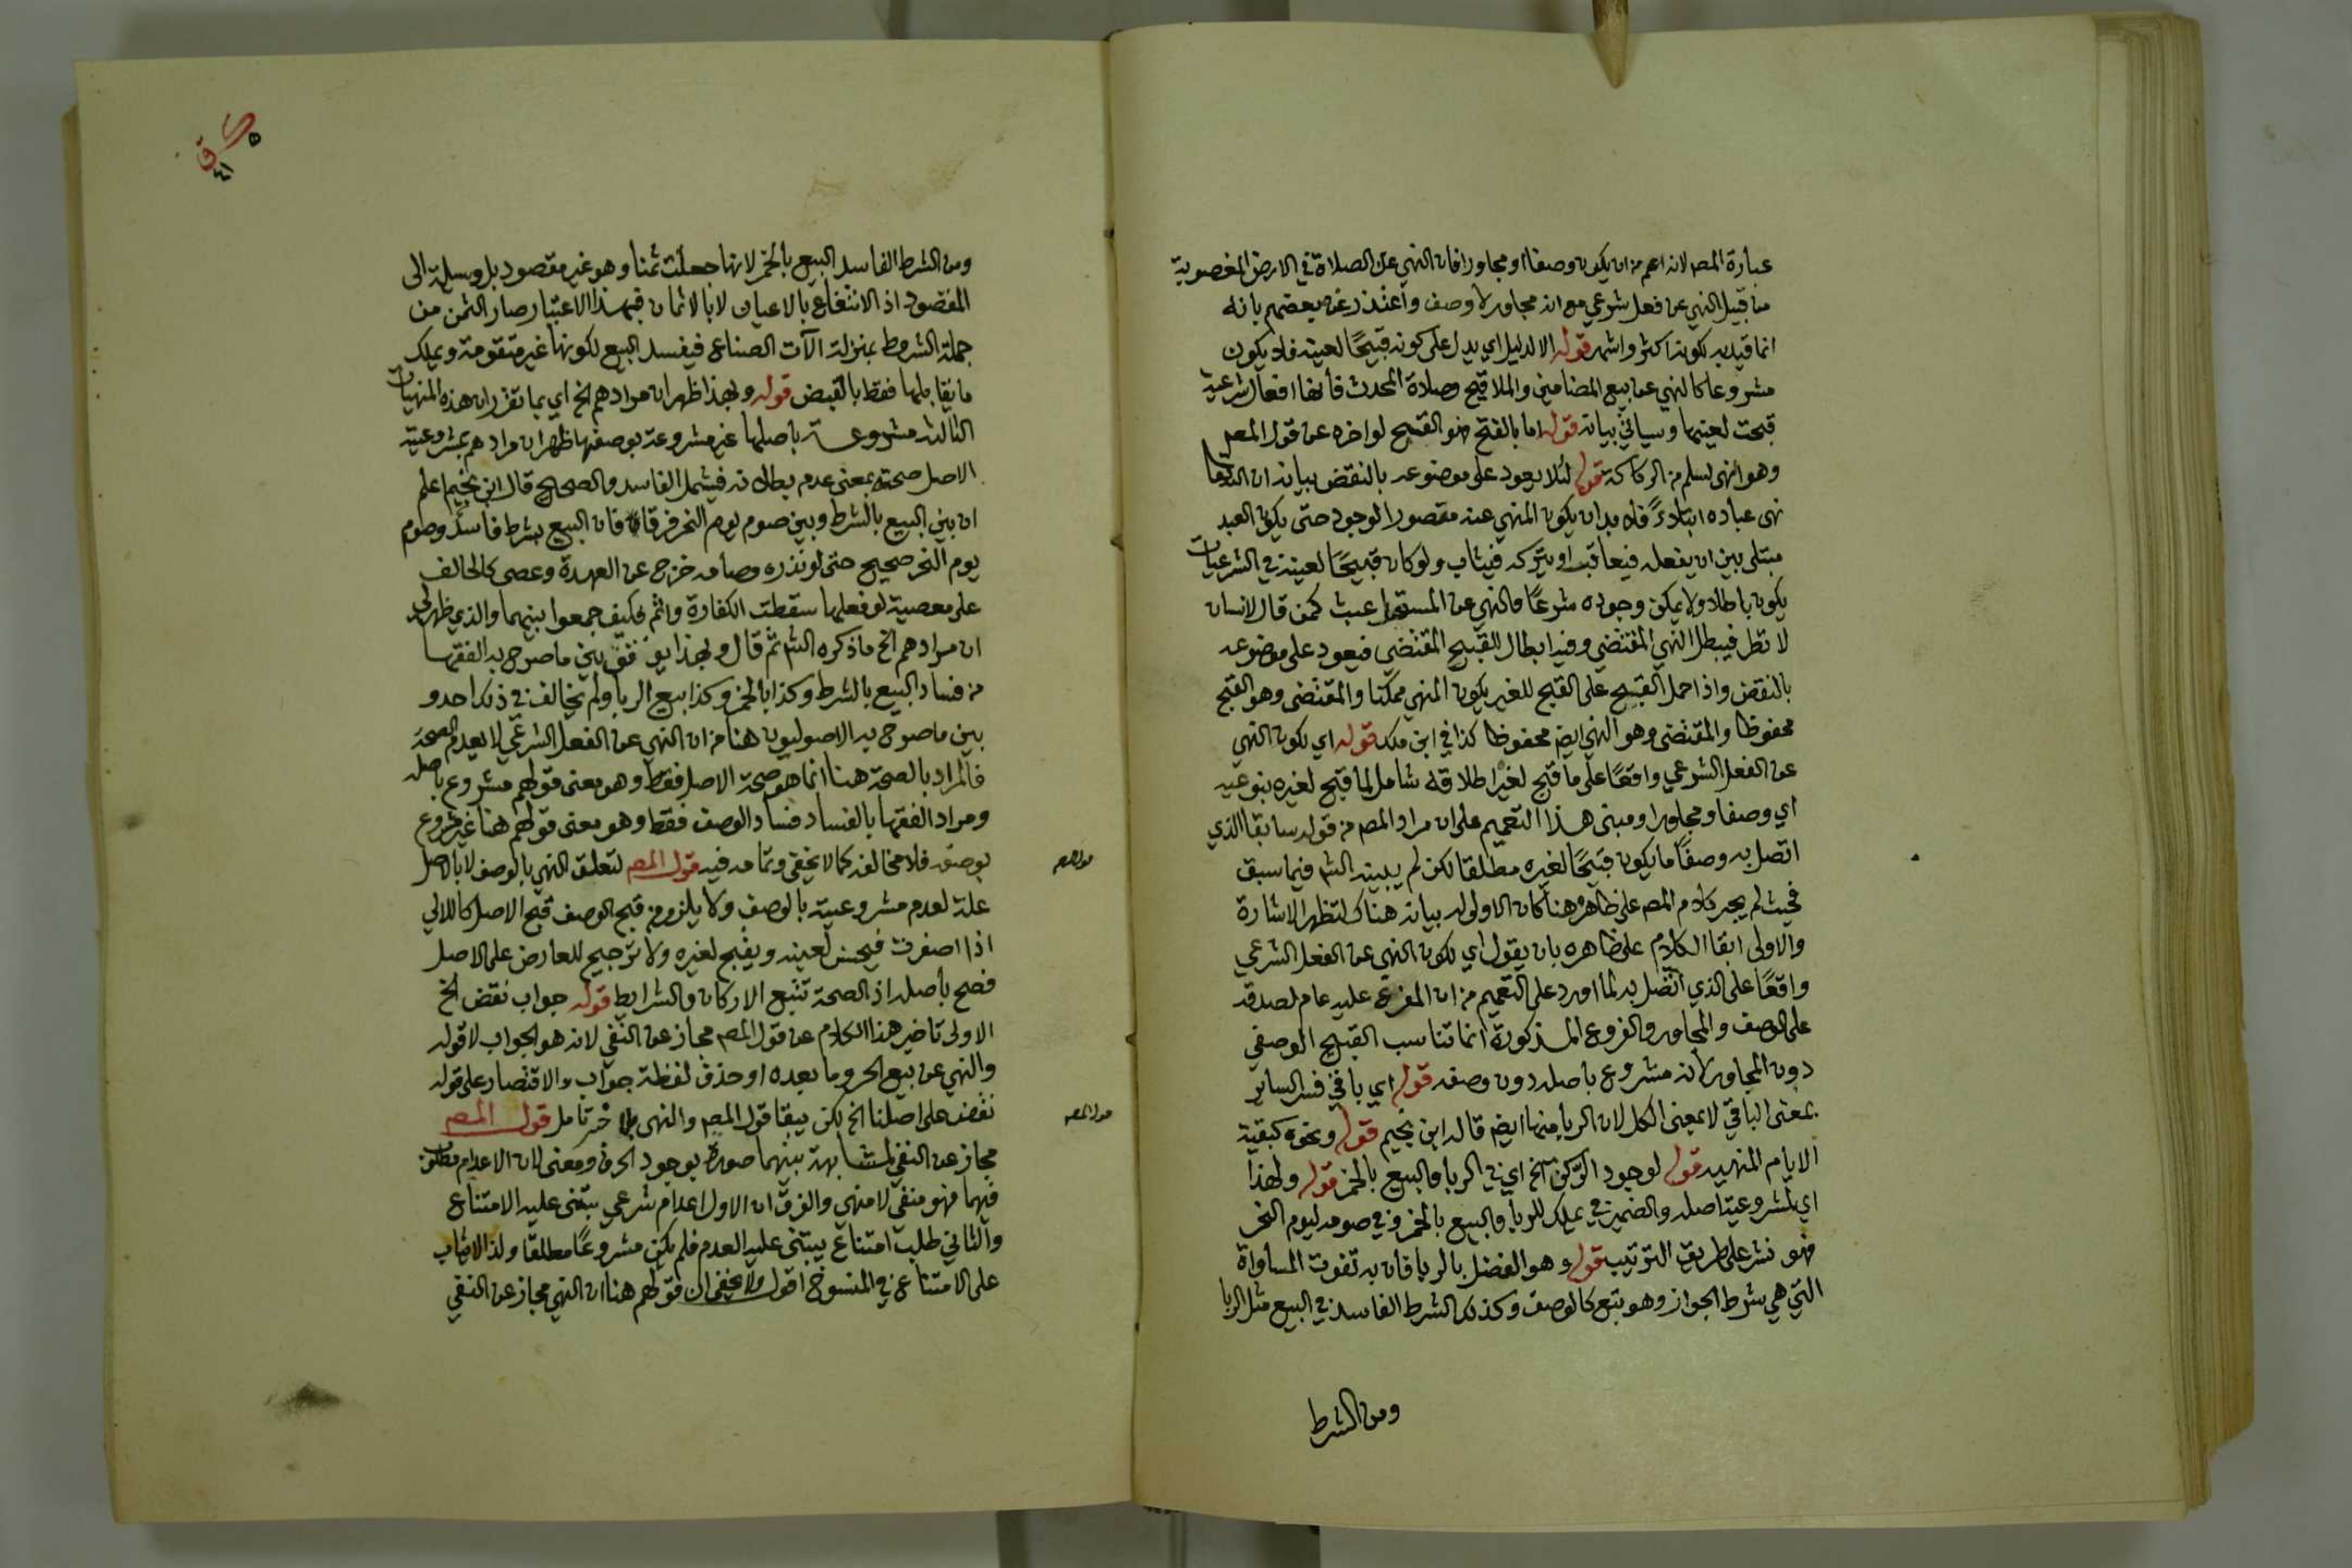 عبارة المصـ لانه اعم من ان يكون وصفا او مجاورا فان النهي عن الصلاة في الارض المغصوبة
من قبيل النهي عن فعل شرعي مع انه مجاور لا وصف واعتذر عن بعضهم بانه
انما قيد به لكونه اكثر واشهر قوله الا لدليل اي يدل على كونه قبيحًا لعينه فلا يكون
مشروعا كالنهي عن بيع المضامين والملاقيح وصلاة المحدث فانها افعال شرعية
قبحت لعينها وسياتي بيانه قوله اما بالفتح فهو القبيح لو اخره عن قول المصـ
وهو النهي لسلم من الركاكة قوله لئلا يعود على موضوعه بالنقض بيانه ان الله تعالى
نهى عباده ابتلاءً فلا بد ان يكون المنهي عنه مقصور الوجود حتى يكون العبد
مبتلى بين ان يفعله فيعاقب او يتركه فيثاب ولو كان قبيحًا لعينه في الشرعيات
يكون باطلا ولا يمكن وجوده شرعًا والنهي عن المستحيل عبث كمن قال لانسان
لا تطر فيبطل النهي المقتضي وفيه ابطال القبيح المقتضي فيعود على موضوعه
بالنقض واذا حمل القبيح على القبح للغير يكون المنهي ممكنا والمقتضى وهو القبح
محفوظا والمقتضي وهو النهي ايضـ محفوظا كذا في ابن ملك قوله اي لكون النهي
عن الفعل الشرعي واقعًا على ما قبح لغيره اطلاقه شامل لما قبح لغيره بنوعيه
اي وصفا ومجاورا ومبنى هذا التعميم على ان مراد المصـ من قوله سابقا الذي
اتصل به وصفًا ما يكون قبيحًا لغيره مطلقا لكن لم يبينه الشـ فيما سبق
فحيث لم يجر كلام المصـ على ظاهره هنا كان الاولى له بيانه هناك لتظهر الاشارة
والاولى ابقا الكلام على ظاهره بان يقول اي لكون النهي عن الفعل الشرعي
واقعًا على الذي اتصل به لما اورد على التعميم من ان المفرع عليه عام لصدقه
على الوصف والمجاور والفروع المذكورة انما تناسب القبيح الوصفي
دون المجاور لانه مشروع باصله دون وصفه قوله اي باقي فسر الساير
بمعنى الباقي لا بمعنى الكل لان الربا منها ايضـ قاله ابن نجيم قوله ونحوه كبقية
الايام المنهيه قوله لوجود الركن الخ اي في الربا والبيع بالخمر قوله ولهذا
اي لمشروعية اصله والضمير في يملك للربا والبيع بالخمر وفي صومه ليوم النحر
فهو نشر على طريق الترتيب قوله وهو الفضل بالربا فان به تفوت المساواة
التي هي شرط الجواز وهو تبع كالوصف وكذلك الشرط الفاسد في البيع مثل الربا
ومن الشرط
ومن الشرط الفاسد البيع بالخمر لانها جعلت ثمنا وهو غير مقصود بل وسيلة الى
المقصود اذ الانتفاع بالاعيان لا بالاثمان فبهذا الاعتبار صار الثمن من
جملة الشروط بمنزلة الآت الصناع فيفسد البيع لكونها غير متقومة ويملك
ما يقابلها فقط بالقبض قوله وبهذا ظهر ان مرادهم الخ اي بما تقرر ان هذه المنهيات
الثالثه مشروعـة باصلها غير مشروعة بوصفها ظهر ان مرادهم بمشروعية
الاصل صحته بمعنى عدم بطلانه فيشمل الفاسد والصحيح قال ابن نجيم اعلم
ان بين البيع بالشرط وبين صوم يوم النحر فرقا فان البيع بشرط فاسد وصوم
يوم النحر صحيح حتى لو نذره وصامه خرج عن العهدة وعصى كالحالف
على معصية لو فعلها سقطت الكفارة واثم فكيف جمعوا بينهما والذي ظهر لي
ان مرادهم الخ ما ذكره الشـ ثم قال وبهذا يوفق بين ما صرح به الفقها
من فساد البيع بالشرط وكذا بالخمر وكذا بيع الربا ولم يخالف في ذلك احد و
بين ما صرح به الاصوليون هنا من ان النهي عن الفعل الشرعي لا يعدم الصحة
فالمراد بالصحة هنا انما هو صحة الاصل فقط وهو معنى قولهم مشروع باصله
ومراد الفقها بالفساد فساد الوصف فقط وهو معنى قولهم هنا غير مشروع
بوصفه فلا مخالفه كما لا يخفى وتمامه فيه قول المصـ لتعلق النهي بالوصف لا بالاصل
علة لعدم مشروعيته بالوصف ولا يلزم من قبح الوصف قبح الاصل كاللالي
اذا اصفرت فيحسن لعينه ويقبح لغيره ولا ترجيح للعارض على الاصل
فصح باصله اذ الصحة تتبع الاركان والشرايط قوله جواب نقض الخ
الاولى تاخير هذا الكلام عن قول المصـ مجاز عن النفي لانه هو الجواب لا قوله
والنهي عن بيع الحر وما بعده او حذف لفظة جواب والاقتصار على قوله
نقض على اصلنا الخ لكن يبقا قول المصـ والنهي بلا خبر تامل قول المصـ
مجاز عن النفي لمشابهة بينهما صورة بوجود الحرف ومعنى لان الاعدام مطلق
فيهما فهو منفي لا منهي والفرق ان الاول اعدام شرعي يبتنى عليه الامتناع
والثاني طلب امتناع يبتنى عليه العدم فلم يكن مشروعًا مطلقا ولذا لا يثاب
على الامتناع في المنسوخ اقول ولا يخفى ان قولهم هنا ان النهي مجاز عن النفي
قول المصـ
قول المصـ